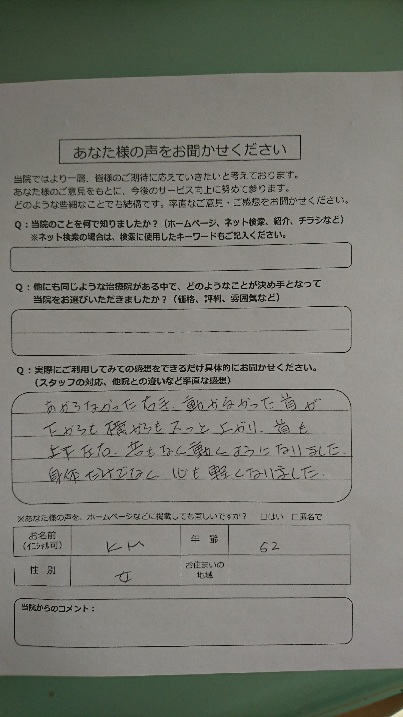 あなた様の声をお聞かせください
当院ではより一層、皆様のご期待に応えていきたいと考えております。
あなた様のご意見をもとに、今後のサービス向上に努めて参ります。
どのような些細なことでも結構です。率直なご意見・ご感想をお聞かせください。
Q：当院のことを何で知りましたか？（ホームページ、ネット検索、紹介、チラシなど）
※ネット検索の場合は、検索に使用したキーワードもご記入ください。
Q：他にも同じような治療院がある中で、どのようなことが決め手となって
当院をお選びいただきましたか？（価格、評判、雰囲気など）
Q：実際にご利用してみての感想をできるだけ具体的にお聞かせください。
（スタッフの対応、他院との違いなど率直な感想）
あがらなかった右手、動かなかった首が
たからも横からもスッと上がり、首も
上下左右、苦もなく動くようになりました。
身体だけでなく 心も軽くなりました。
※あなた様の声を、ホームページなどに掲載しても宜しいですか？ □はい □匿名で
お名前 KM 年 齢 52
（イニシャル可）
性 別 女 お住まいの
地域
当院からのコメント：